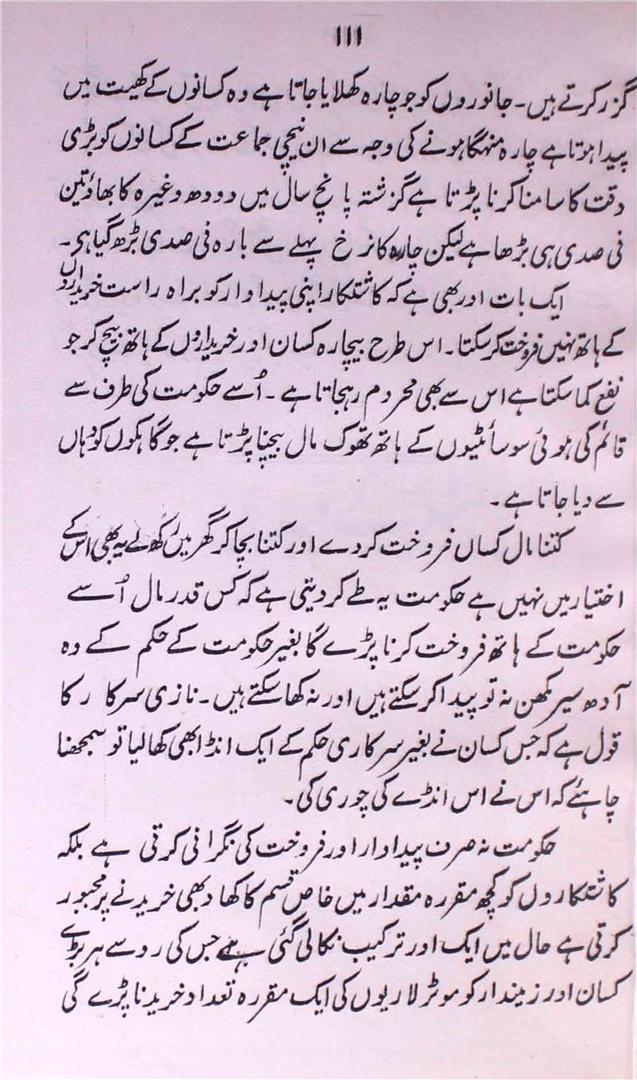 ۱۱۱
گزر کرتے ہیں۔ جانوروں کو جو چارہ کھلایا جاتا ہے وہ کسانوں کے کھیت میں
پیدا ہوتا ہے چارہ مہنگا ہونے کی وجہ سے ان نیچی جماعت کے کسانوں کو بڑی
دقت کا سامنا کرنا پڑتا ہے گزشتہ پانچ سال میں دودھ وغیرہ کا بھاؤ تین
فی صدی ہی بڑھا ہے لیکن چارہ کا نرخ پہلے سے بارہ فی صدی بڑھ گیا ہے۔
ایک بات اور بھی ہے کہ کاشتکار اپنی پیداوار کو براہ راست خریداروں
کے ہاتھ نہیں فروخت کر سکتا۔ اس طرح بیچارہ کسان اور خریداروں کے ہاتھ بیچ کر جو
نفع کما سکتا ہے اس سے بھی محروم رہجاتا ہے۔ اُسے حکومت کی طرف سے
قائم کی ہوئی سوسائٹیوں کے ہاتھ تھوک مال بیچنا پڑتا ہے جو گاہکوں کو وہاں
سے دیا جاتا ہے۔
کتنا مال کسان فروخت کردے اور کتنا بچا کر گھر میں رکھ لے یہ بھی اس کے
اختیار میں نہیں ہے حکومت یہ طے کر دیتی ہے کہ کس قدر مال اُسے
حکومت کے ہاتھ فروخت کرنا پڑے گا بغیر حکومت کے حکم کے وہ
آدھ سیر مکھن نہ تو پیدا کر سکتے ہیں اور نہ کھا سکتے ہیں۔ نازی سرکار کا
قول ہے کہ جس کسان نے بغیر سرکاری حکم کے ایک انڈا بھی کھا لیا تو سمجھنا
چاہئے کہ اس نے اس انڈے کی چوری کی۔
حکومت نہ صرف پیداوار اور فروخت کی نگرانی کرتی ہے بلکہ
کاشتکاروں کو کچھ مقررہ مقدار میں خاص قسم کا کھاد بھی خریدنے پر مجبور
کرتی ہے حال میں ایک اور ترکیب نکالی گئی ہے جس کی رو سے ہر بڑے
کسان اور زمیندار کو موٹر لاریوں کی ایک مقررہ تعداد خریدنا پڑے گی